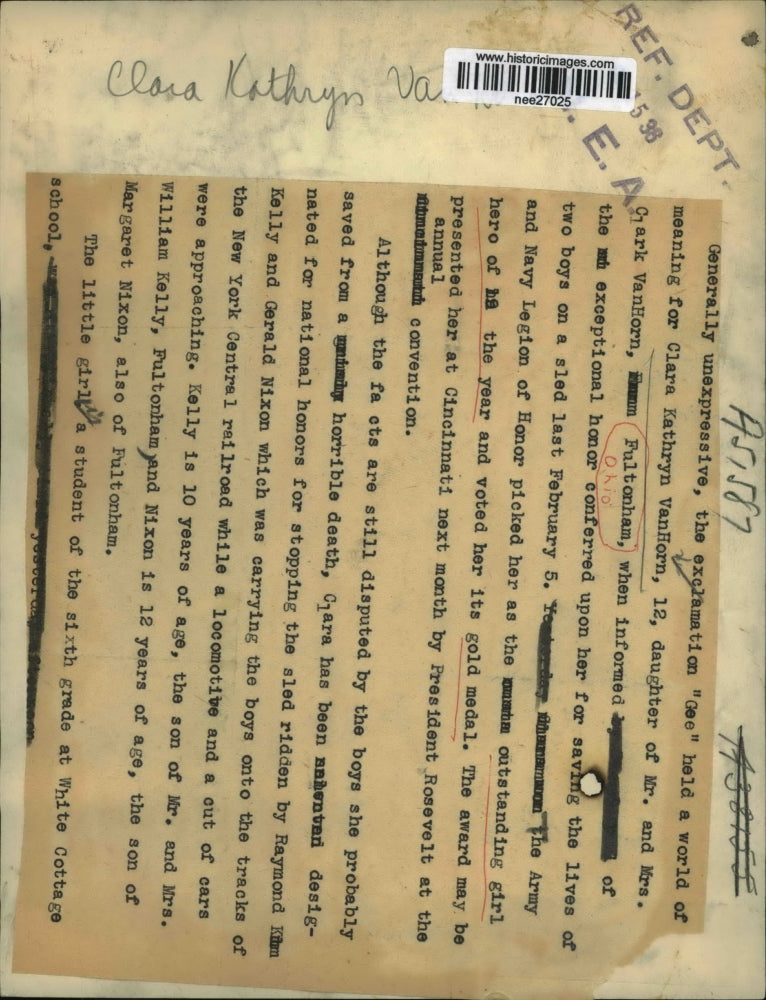 Clara Kathryn Va
www.historicimages.com
nee27025
REF. DEPT.
5 36
E. A.
A51587
Generally unexpressive, the exclamation "Gee" held a world of
meaning for Clara Kathryn VanHorn, 12, daughter of Mr. and Mrs.
Clark VanHorn, Fultonham, when informed of
Ohio
the exceptional honor conferred upon her for saving the lives of
two boys on a sled last February 5. the Army
and Navy Legion of Honor picked her as the outstanding girl
hero of the year and voted her its gold medal. The award may be
presented her at Cincinnati next month by President Rosevelt at the
annual
convention.
Although the fa cts are still disputed by the boys she probably
saved from a horrible death, Clara has been desig-
nated for national honors for stopping the sled ridden by Raymond
Kelly and Gerald Nixon which was carrying the boys onto the tracks of
the New York Central railroad while a locomotive and a cut of cars
were approaching. Kelly is 10 years of age, the son of Mr. and Mrs.
William Kelly, Fultonham, and Nixon is 12 years of age, the son of
Margaret Nixon, also of Fultonham.
The little girl is a student of the sixth grade at White Cottage
school,